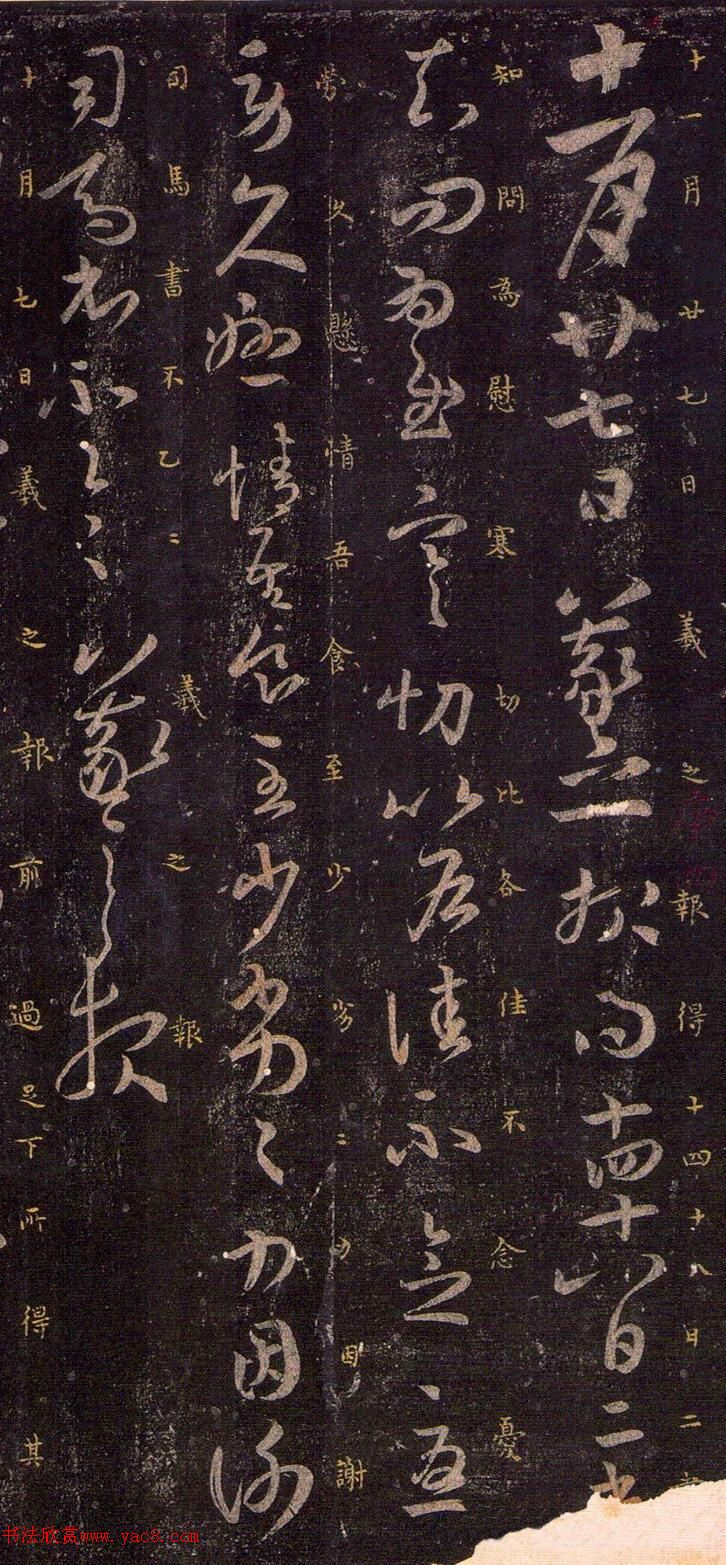 十一月廿七日羲之報得十四十八日二
十一月廿七日羲之報得十四十八日二
知問為慰寒切比各佳不念憂
知問為慰寒切比各佳不念憂
勞久懸情吾食至少劣〻力因謝
勞久懸情吾食至少劣〻力因謝
司馬書不乙〻羲之報
司馬書不乙〻羲之報
十月七日羲之報前過足下所得其
书法欣赏www.yac8.com